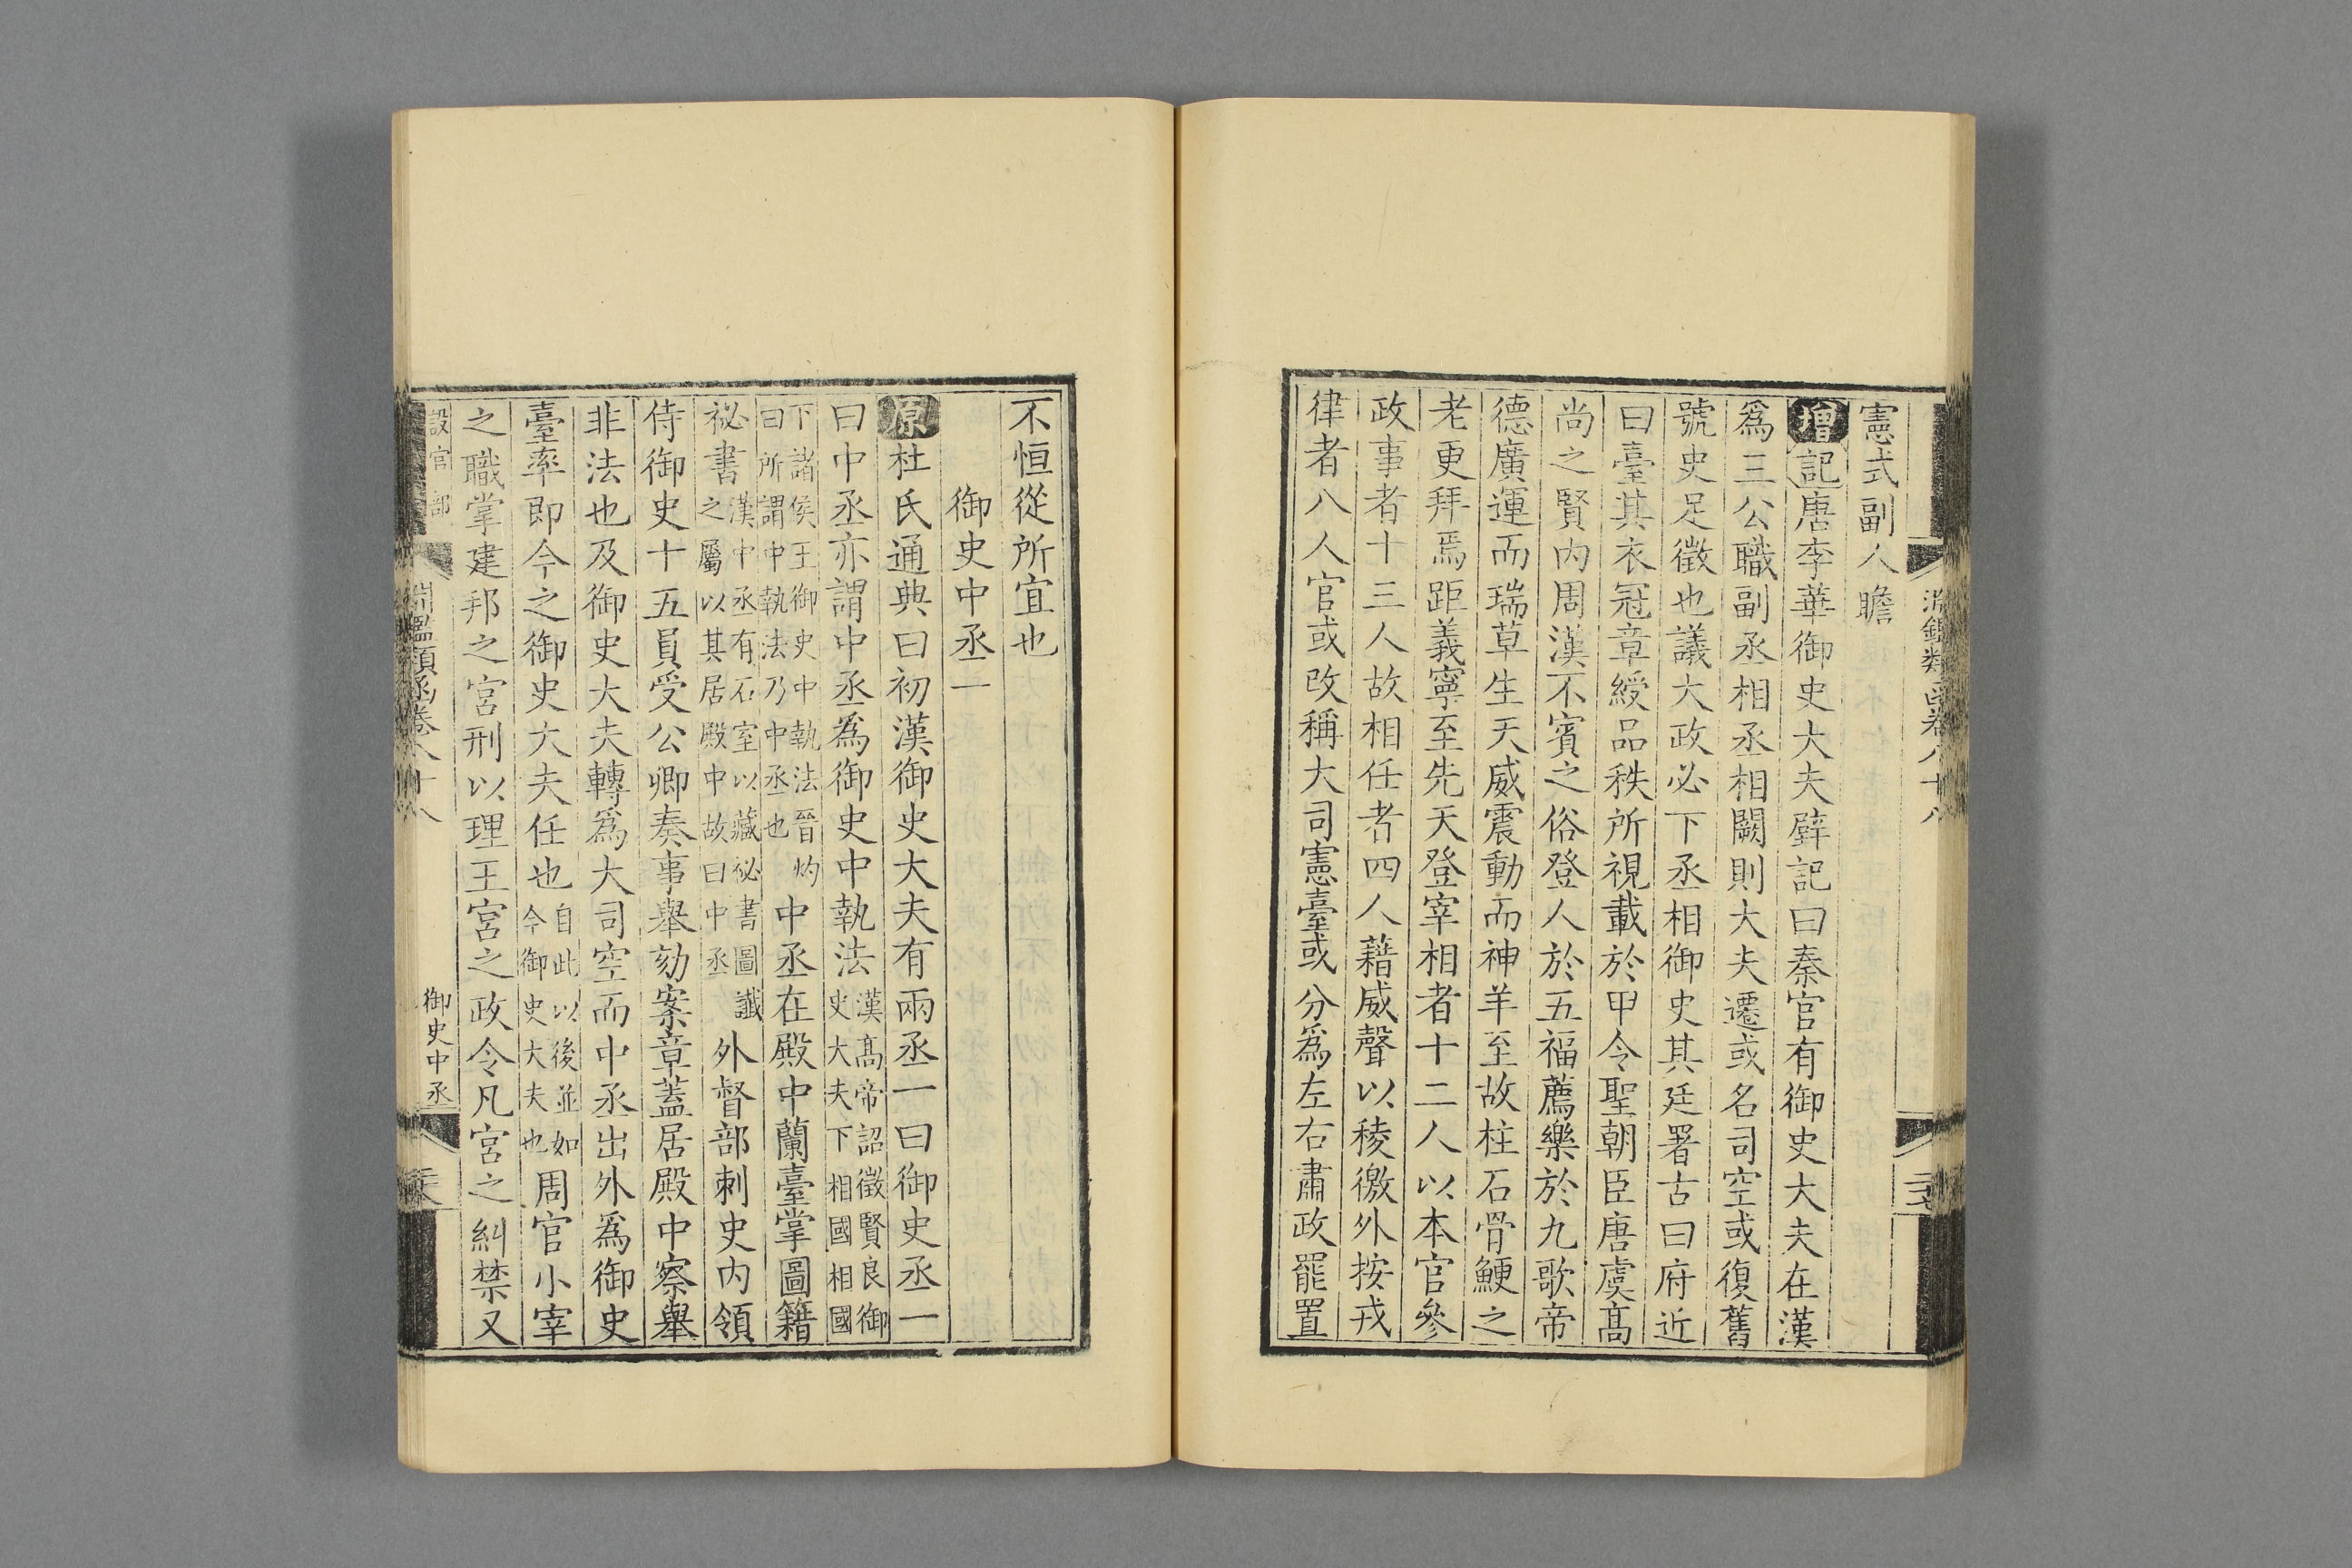 淵鑑類函卷八十八
憲式副人瞻
增記唐李華御史大夫壁記曰秦官有御史大夫在漢
爲三公職副丞相丞相闕則大夫遷或名司空或復舊
號史足徵也議大政必下丞相御史其廷署古曰府近
曰臺其衣冠章綬品秩所視載於甲令聖朝臣唐虞高
尚之賢內周漢不賓之俗登人於五福薦樂於九歌帝
德廣運而瑞草生天威震動而神羊至故柱石骨鯁之
老更拜焉距義寧至先天登宰相者十二人以本官參
政事者十三人故相任者四人藉威聲以稜徼外按戎
律者八人官或改稱大司憲臺或分爲左右肅政罷置
不恒從所宜也
御史中丞一
原杜氏通典曰初漢御史大夫有兩丞一曰御史丞一
曰中丞亦謂中丞爲御史中執法漢高帝詔徵賢良御史大夫下相國相國
下諸侯王御史中執法晉灼曰所謂中執法乃中丞也中丞在殿中蘭臺掌圖籍
祕書漢中丞有石室以藏祕書圖讖之屬以其居殿中故曰中丞外督部刺史內領
侍御史十五員受公卿奏事舉劾案章蓋居殿中察舉
非法也及御史大夫轉爲大司空而中丞出外爲御史
臺率即今之御史大夫任也自此以後並如今御史大夫也周官小宰
之職掌建邦之宮刑以理王宮之政令凡宮之糾禁又
設官部 淵鑑類函卷八十八 御史中丞 二六